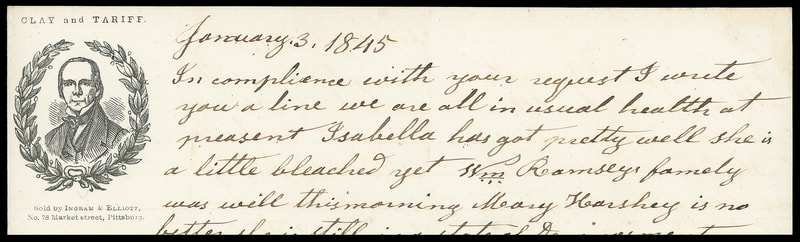 CLAY and TARIFF.
Sold by INGRAM & ELLIOTT,
No. 78 Market street, Pittsburg.
January. 3. 1845
In complience with your request I write
you a line we are all in usual health at
preasent Isabella has got pretty well she is
a little bleached yet Wm Ramseys famely
was well this morning Mary Harshey is no
better she is still in a state of